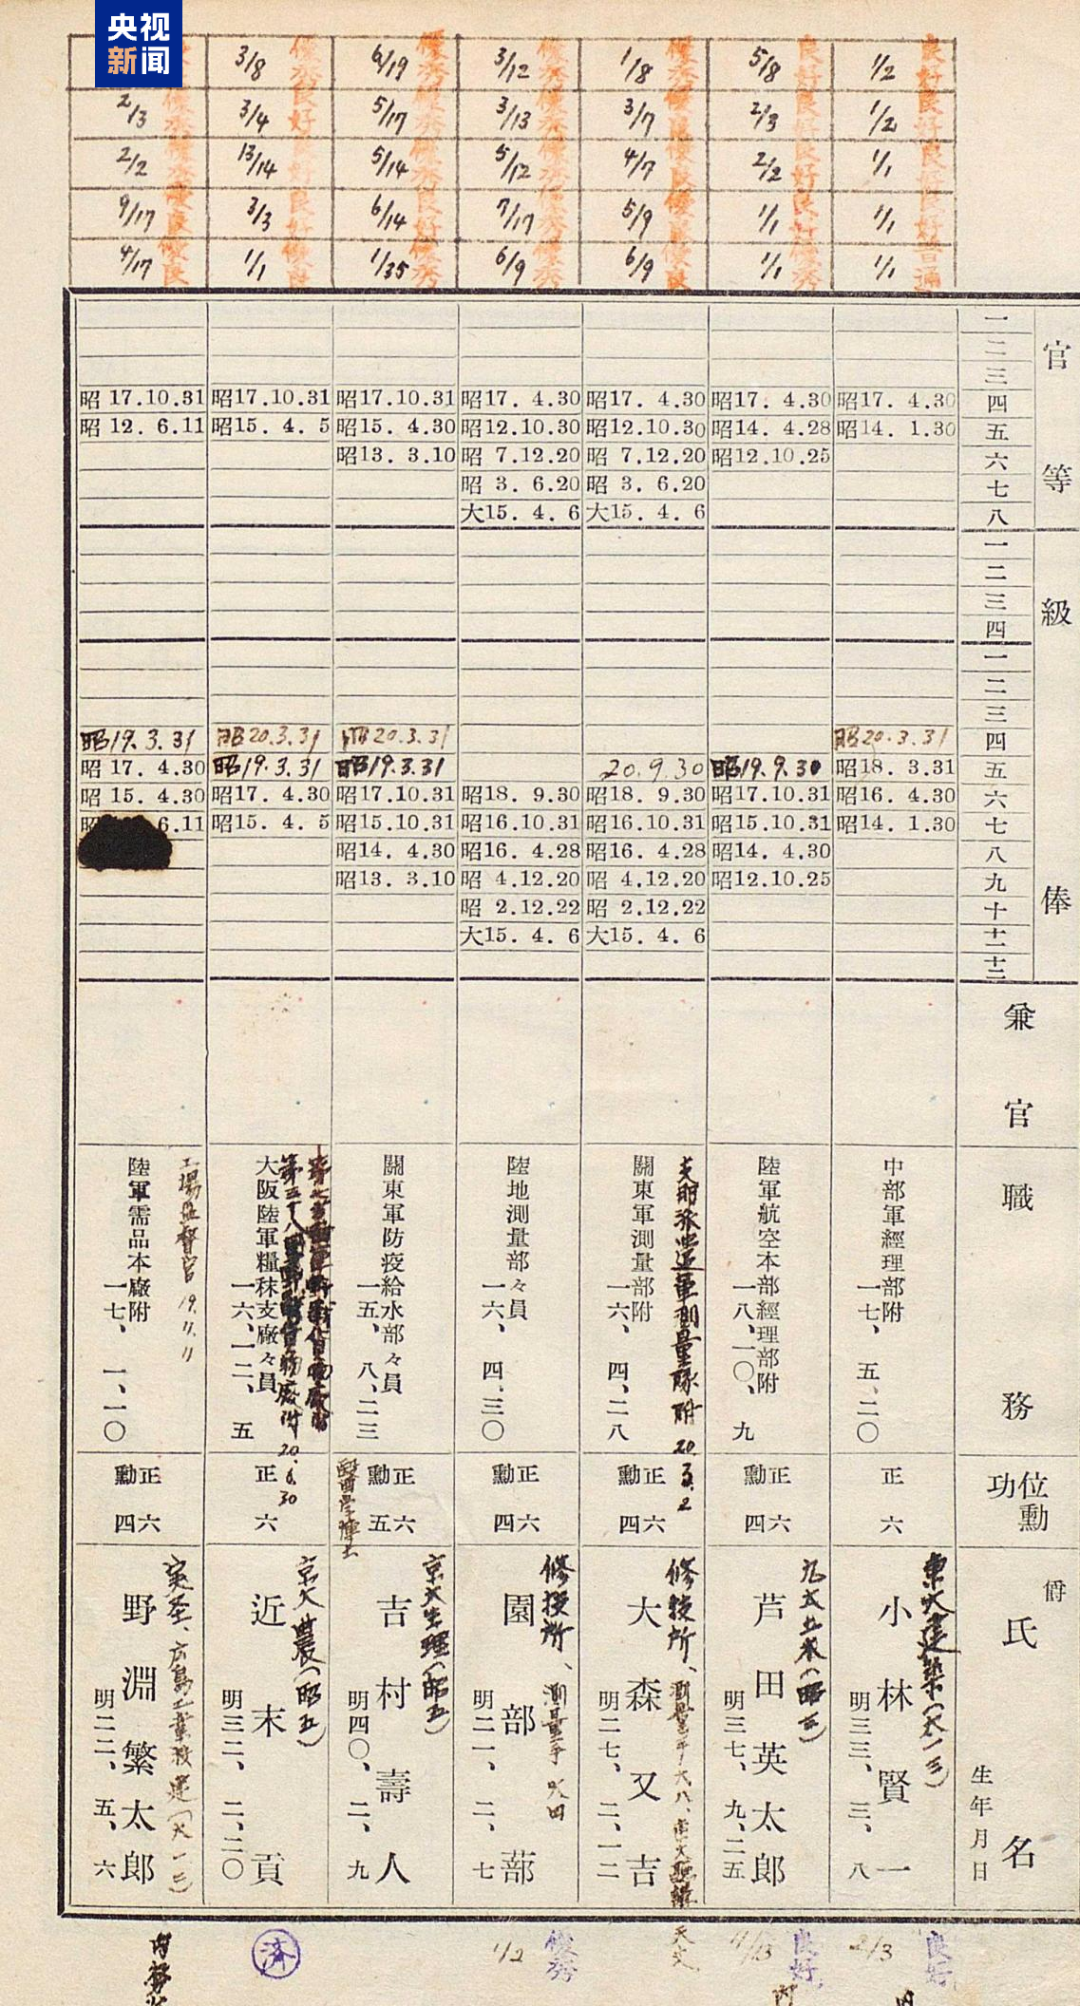 央视
新闻
1/2 良好
1/2 良好
1/1 良好
1/1 良好
1/1 普通
5/8 良好
2/3 良好
2/2 良好
1/1 良好
1/1 優秀
1/8 優秀
3/7 優良
4/7 優良
5/9 優良
6/9 優良
3/12 優秀
3/13 優秀
5/12 優秀
7/17 優秀
6/9 優秀
6/19 優秀
5/17 優秀
5/14 優秀
6/14 良好
1/35 優秀
3/8 優秀
3/4 良好
13/14 良好
3/3 良好
1/1 優良
2/3 優秀
2/2 優秀
9/17 優良
4/17 優良
官等
一
二
三
四
五
六
七
八
級俸
一
二
三
四
一
二
三
四
五
六
七
八
九
十
十一
十二
兼官
職務
位勳功
爵
氏名
生年月日
昭17. 4.30
昭14. 1.30
昭20.3.31
昭18. 3.31
昭16. 4.30
昭14. 1.30
中部軍經理部附
一七、五、二〇
正六
東大建築(大一三)
小林賢一
明三三、三、八
昭17. 4.30
昭14. 4.28
昭12.10.25
昭19.9.30
昭17.10.31
昭15.10.31
昭14. 4.30
昭12.10.25
陸軍航空本部經理部附
一八、一〇、九
正六
勳四
芦田英太郎
明三七、九、二五
昭17. 4.30
昭12.10.30
昭 7.12.20
昭 3. 6.20
大15. 4. 6
20.9.30
昭18. 9.30
昭16.10.31
昭16. 4.28
昭 4.12.20
昭 2.12.22
大15. 4. 6
支那派遣軍測量隊附 20.3.2
關東軍測量部附
一六、四、二八
正六
勳四
修技所、
大森又吉
明二七、二、一二
昭17. 4.30
昭12.10.30
昭 7.12.20
昭 3. 6.20
大15. 4. 6
昭18. 9.30
昭16.10.31
昭16. 4.28
昭 4.12.20
昭 2.12.22
大15. 4. 6
陸地測量部々員
一六、四、三〇
正六
勳四
修技所、測量手
園部蔀
明二一、二、七
昭17.10.31
昭15. 4.30
昭13. 3.10
昭20.3.31
昭19.3.31
昭17.10.31
昭15.10.31
昭14. 4.30
昭13. 3.10
關東軍防疫給水部々員
一五、八、二三
正六
勳五
醫學博士
京大生理(昭五)
吉村壽人
明四〇、二、九
昭17.10.31
昭15. 4. 5
昭20.3.31
昭19.3.31
昭17. 4.30
昭15. 4. 5
大阪陸軍糧秣支廠々員
一六、一二、五
20.6.30
正六
京大農(昭五)
近末貢
明三二、二、二〇
昭 17.10.31
昭 12. 6.11
昭19.3.31
昭 17. 4.30
昭 15. 4.30
6.11
工場監督官 19.11.11
陸軍需品本廠附
一七、一、一〇
正六
勳四
野淵繁太郎
明二二、五、六
良好
2/3
良好
4/13
天文
優秀
1/2
済
内務省